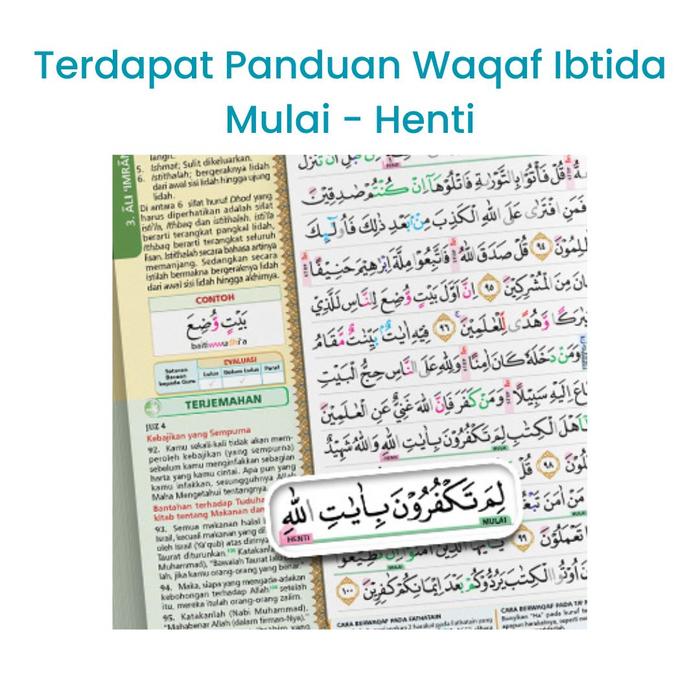 Terdapat Panduan Waqaf Ibtida
Mulai - Henti
3. ĀLI 'IMRĀN
langit.
5. Ishmat; Sulit dikeluarkan.
6. Istithalah; bergeraknya lidah
dari awal sisi lidah hingga ujung
lidah.
Di antara 6 sifat huruf Dhod yang
harus diperhatikan adalah sifat
isti'la, ithbaq dan istithalah. isti'la
berarti terangkat pangkal lidah,
ithbaq berarti terangkat seluruh
lisan. Istithalah secara bahasa artinya
memanjang. Sedangkan secara
istilah bermakna bergeraknya lidah
dari awal sisi lidah hingga akhirnya.
CONTOH
بَيْتٍ وُّضِعَ
baitiwwudhi'a
Setoran Bacaan kepada Guru
EVALUASI
Lulus Belum Lulus Paraf
TERJEMAHAN
JUZ 4
Kebajikan yang Sempurna
92. Kamu sekali-kali tidak akan mem-
peroleh kebajikan (yang sempurna)
sebelum kamu menginfakkan sebagian
harta yang kamu cintai. Apa pun yang
kamu infakkan, sesungguhnya Allah
Maha Mengetahui tentangnya.
Bantahan terhadap
kitab tentang Makanan dan
93. Semua makanan halal
Israil, kecuali makanan yang
oleh Israil (Ya'qub) atas
Taurat diturunkan. Katakan
Muhammad), "Bawalah Taurat
lah, jika kamu orang-orang yang benar."
94. Maka, siapa yang mengada-adakan
kebohongan terhadap Allah setelah
itu, mereka itulah orang-orang zalim.
95. Katakanlah (Nabi Muhammad),
"Mahabenar Allah (dalam firman-Nya)."
قُلْ فَأْتُوْا بِالتَّوْرٰىةِ فَاتْلُوْهَآ اِنْ كُنْتُمْ صٰدِقِيْنَ
فَمَنِ افْتَرٰى عَلَى اللّٰهِ الْكَذِبَ مِنْۢ بَعْدِ ذٰلِكَ فَاُولٰۤىِٕكَ
٩٤ قُلْ صَدَقَ اللّٰهُ فَاتَّبِعُوْا مِلَّةَ اِبْرٰهِيْمَ حَنِيْفًا
مِنَ الْمُشْرِكِيْنَ ٩٥ اِنَّ اَوَّلَ بَيْتٍ وُّضِعَ لِلنَّاسِ لَلَّذِيْ
وَّهُدًى لِّلْعٰلَمِيْنَ ٩٦ فِيْهِ اٰيٰتٌۢ بَيِّنٰتٌ مَّقَامُ
وَمَنْ دَخَلَهٗ كَانَ اٰمِنًا وَلِلّٰهِ عَلَى النَّاسِ حِجُّ الْبَيْتِ
اِلَيْهِ سَبِيْلًا وَمَنْ كَفَرَ فَاِنَّ اللّٰهَ غَنِيٌّ عَنِ الْعٰلَمِيْنَ
الْكِتٰبِ لِمَ تَكْفُرُوْنَ بِاٰيٰتِ اللّٰهِ وَاللّٰهُ شَهِيْدٌ
٩٨
لِمَ تَكْفُرُوْنَ بِاٰيٰتِ اللّٰهِ
MULAI
HENTI
٩٩
اُوْتُوا الْكِتٰبَ يَرُدُّوْكُمْ بَعْدَ اِيْمَانِكُمْ كٰفِرِيْنَ ١٠٠
CARA BERWAQAF PADA FATHATAIN